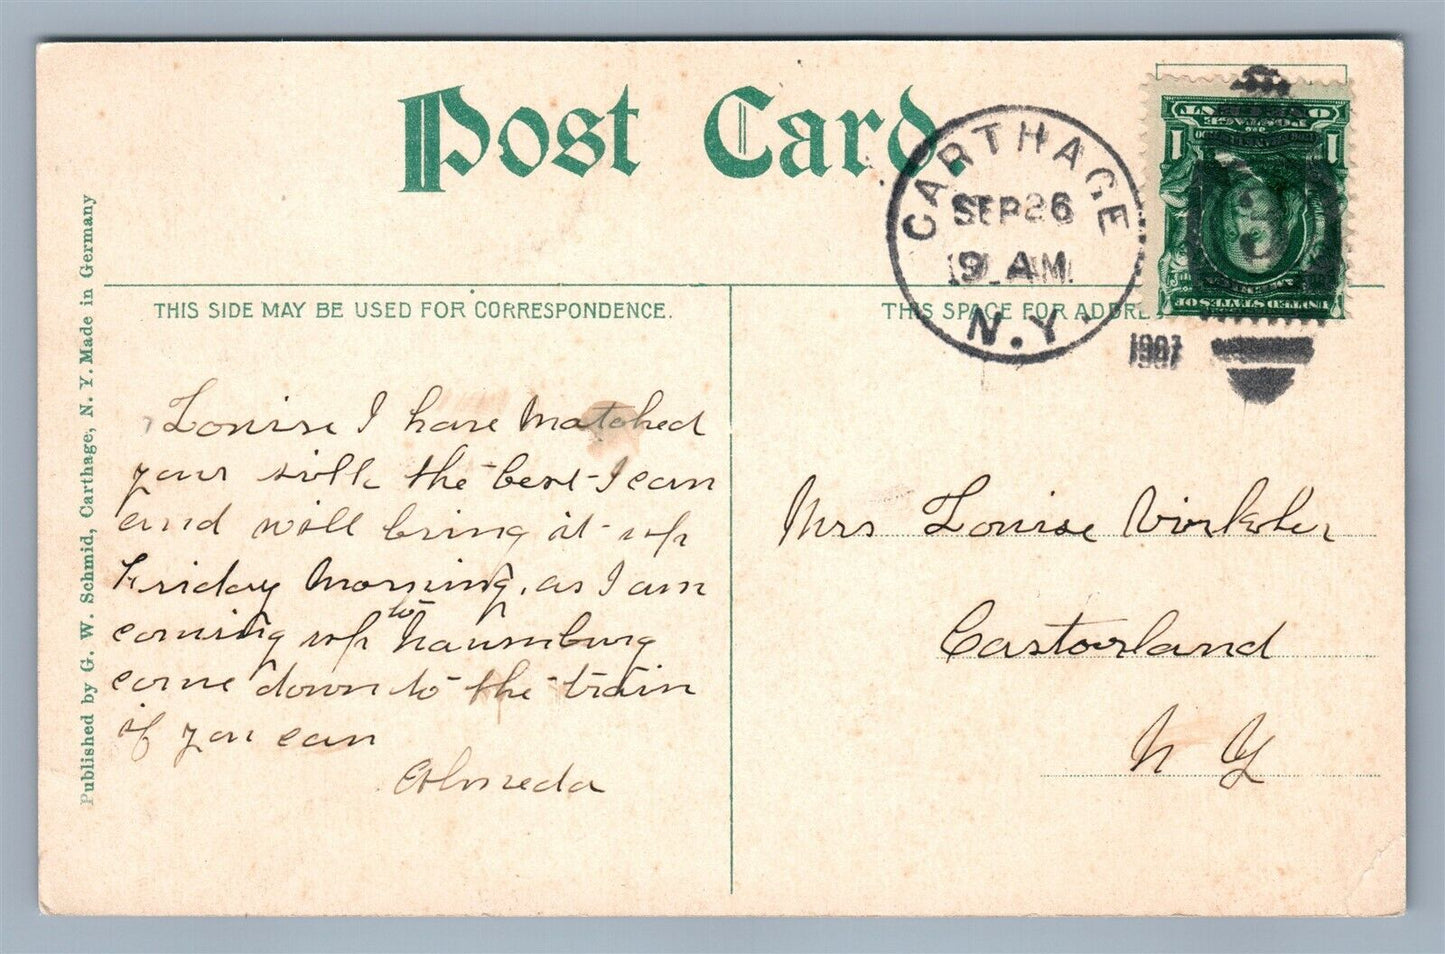 Post Card.
CARTHAGE
SEP 26
9 AM
N.Y.
1907
3
ONE CENT
POSTAGE
1 1
UNITED STATES OF
THIS SIDE MAY BE USED FOR CORRESPONDENCE.
THIS SPACE FOR ADDRE
Published by G. W. Schmid, Carthage, N. Y. Made in Germany
Louise I have matched
your silk the best I can
and will bring it up
Friday morning, as I am
coming up to
come down to the train
if you can
Mrs Louise
Castorland
N Y